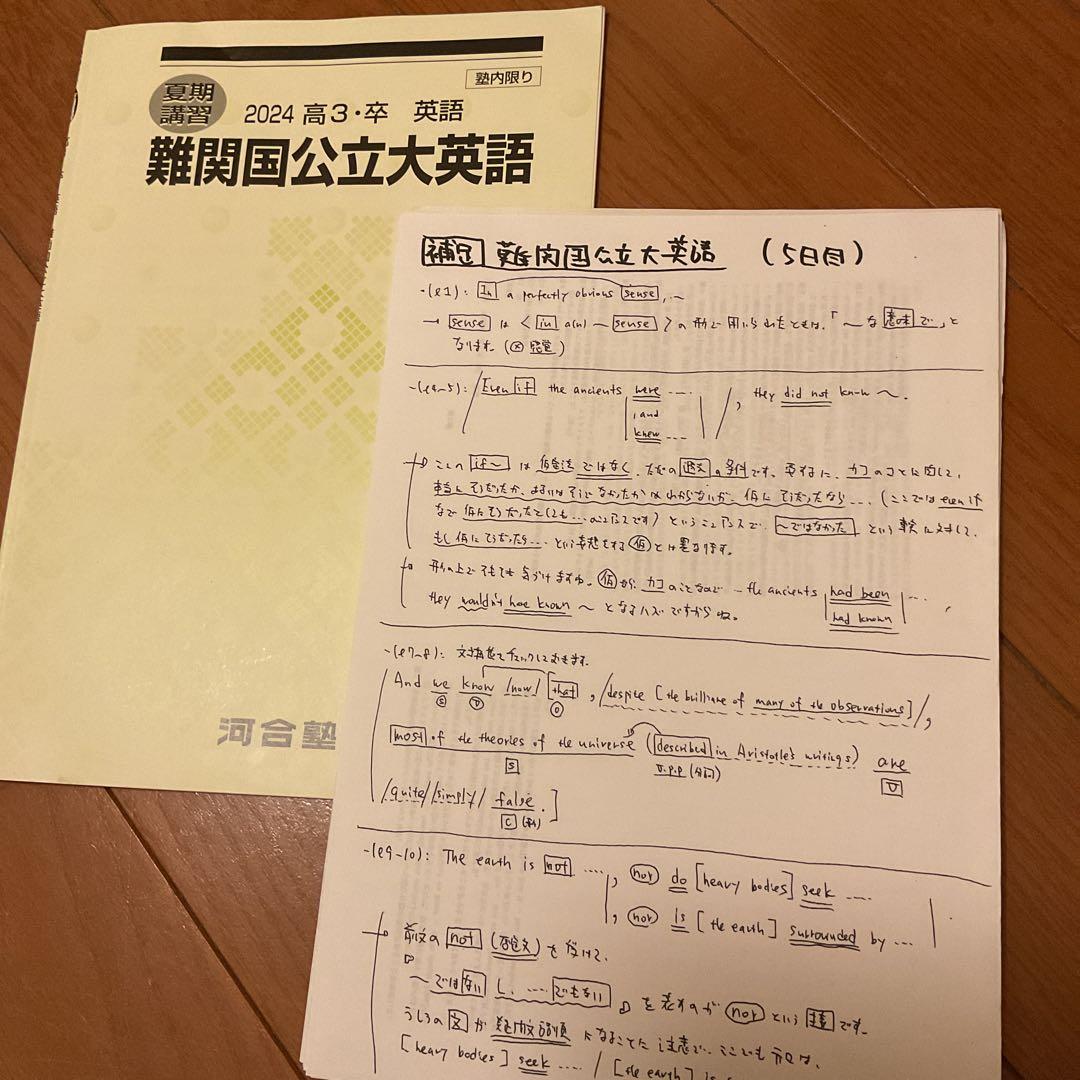 塾内限り
夏期
講習
2024 高3・卒 英語
難関国公立大英語
河合塾
補足 難関国公立大英語 (5日目)
-(ℓ1): In a perfectly obvious sense, ~
→ sense は〈in a(n) ~ sense〉の形で用いられたときは、「~な意味で」と
なります。(× 感覚)
-(ℓ4~5): / Even if the ancients were .... /, they did not know ~.
, and
knew ...
この if~ は 仮定法 ではなく、ただの の条件です。要するに、カコのことに関して、
本当にそうだったか、あるいはそうでなかったかはわからないが、仮にそうだったなら.... (ここでは even if
なので 仮にそうだったとしても... のニュアンスです) というニュアンスで、~ではなかった という事実に対して、
もし仮にそうだったら... という 仮 とは異なります。
形の上でもすぐ気づけますね。仮 なら、カコのことなので - the ancients had been ....,
had known
they wouldn't have known ~ となるハズですからね。
-(ℓ7~8): 文構造をチェックしておきます。
And we know /now/ that, /despite [the brilliance of many of the observations]/,
S V O
most of the theories of the universe (described in Aristotle's writings) are
S V.p.p (分詞) V
/quite/ /simply/ false.]
C
-(ℓ9~10): The earth is not ...., nor do [heavy bodies] seek ....
, nor is [the earth] surrounded by ...
前文の not (否定文) を受けて、
「~ではないし、....でもない」を表すのが nor という 接 です。
うしろの 文 が 疑問文語順 になることに注意で、ここでも元は、
[heavy bodies] seek .... / [the earth] is